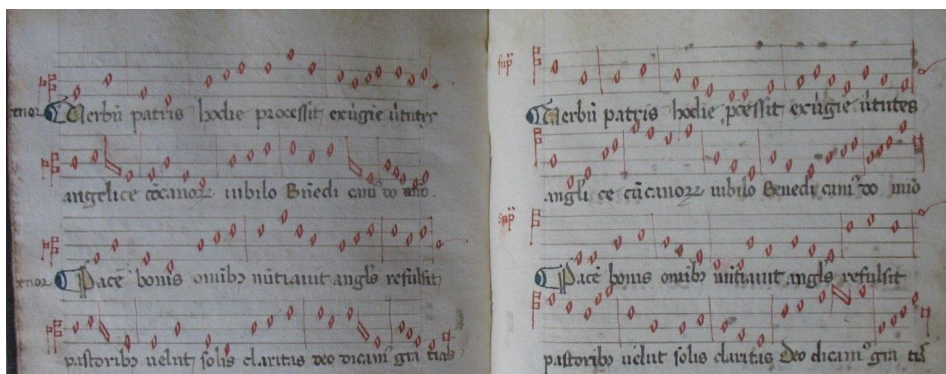 tenor Verbū patris hodie processit ex ūgīe ūtutes
angelice cōcanorꝝ iubilo Bn̄edi cam⁹ do mīo.
tenor Pacē bonis omībꝫ nūtiauit angl̄s refulsit
pastoribꝫ uelut solis claritas deo dicam⁹ gr̄a tias
sup̄
Verbū patris hodie p̄cessit ex ūgīe ūtutes
angl̄i ce cūcanorꝝ iubilo Benedi cam⁹ do mīo
sup̄
Pacē bonis omībꝫ nūtiauit angl̄s refulsit
pastoribꝫ uelut solis claritas Deo dicam⁹ gr̄a tīs